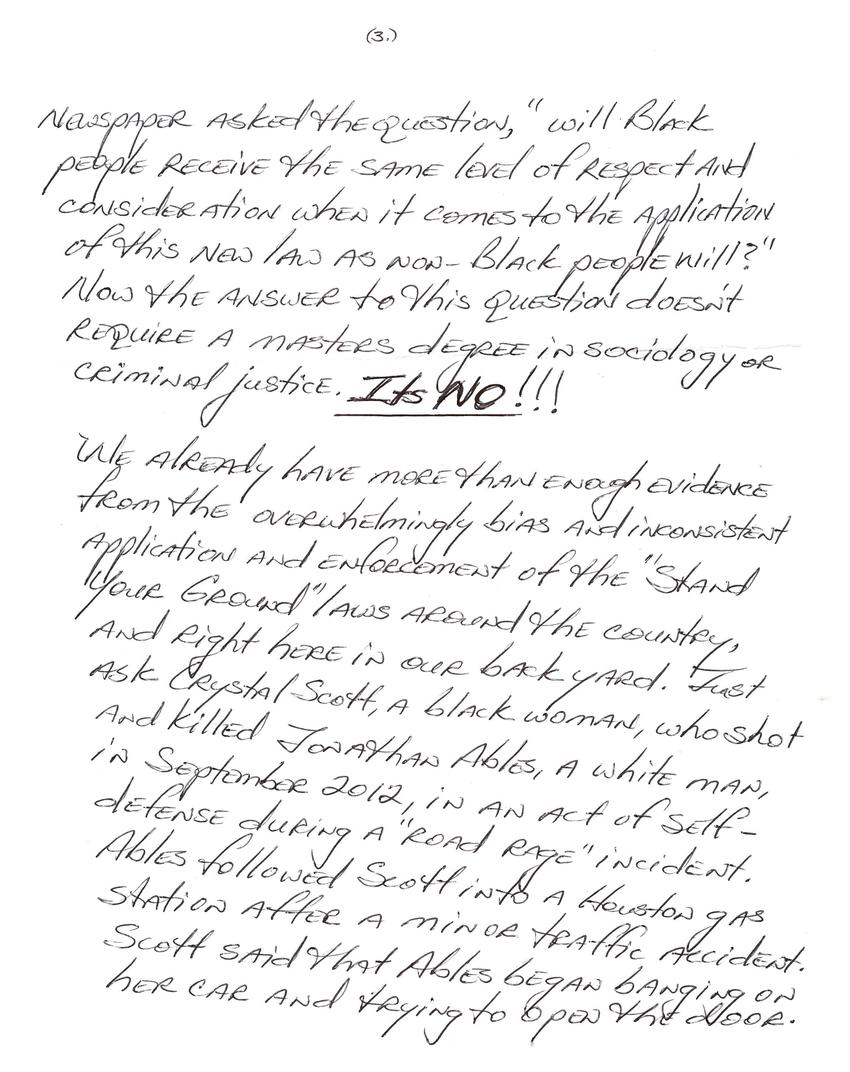 (3.)
Newspaper asked the question, "will Black
people receive the same level of respect and
consideration when it comes to the application
of this new law as non-Black people will?"
Now the answer to this question doesn't
require a masters degree in sociology or
criminal justice. Its NO!!!
We already have more than enough evidence
from the overwhelmingly bias and inconsistent
application and enforcement of the "Stand
Your Ground" laws around the country,
and right here in our back yard. Just
ask Crystal Scott, a black woman, who shot
and killed Jonathan Ables, a white man,
in September 2012, in an act of self-
defense during a "road rage" incident.
Ables followed Scott into a Houston gas
station after a minor traffic accident.
Scott said that Ables began banging on
her car and trying to open the door.